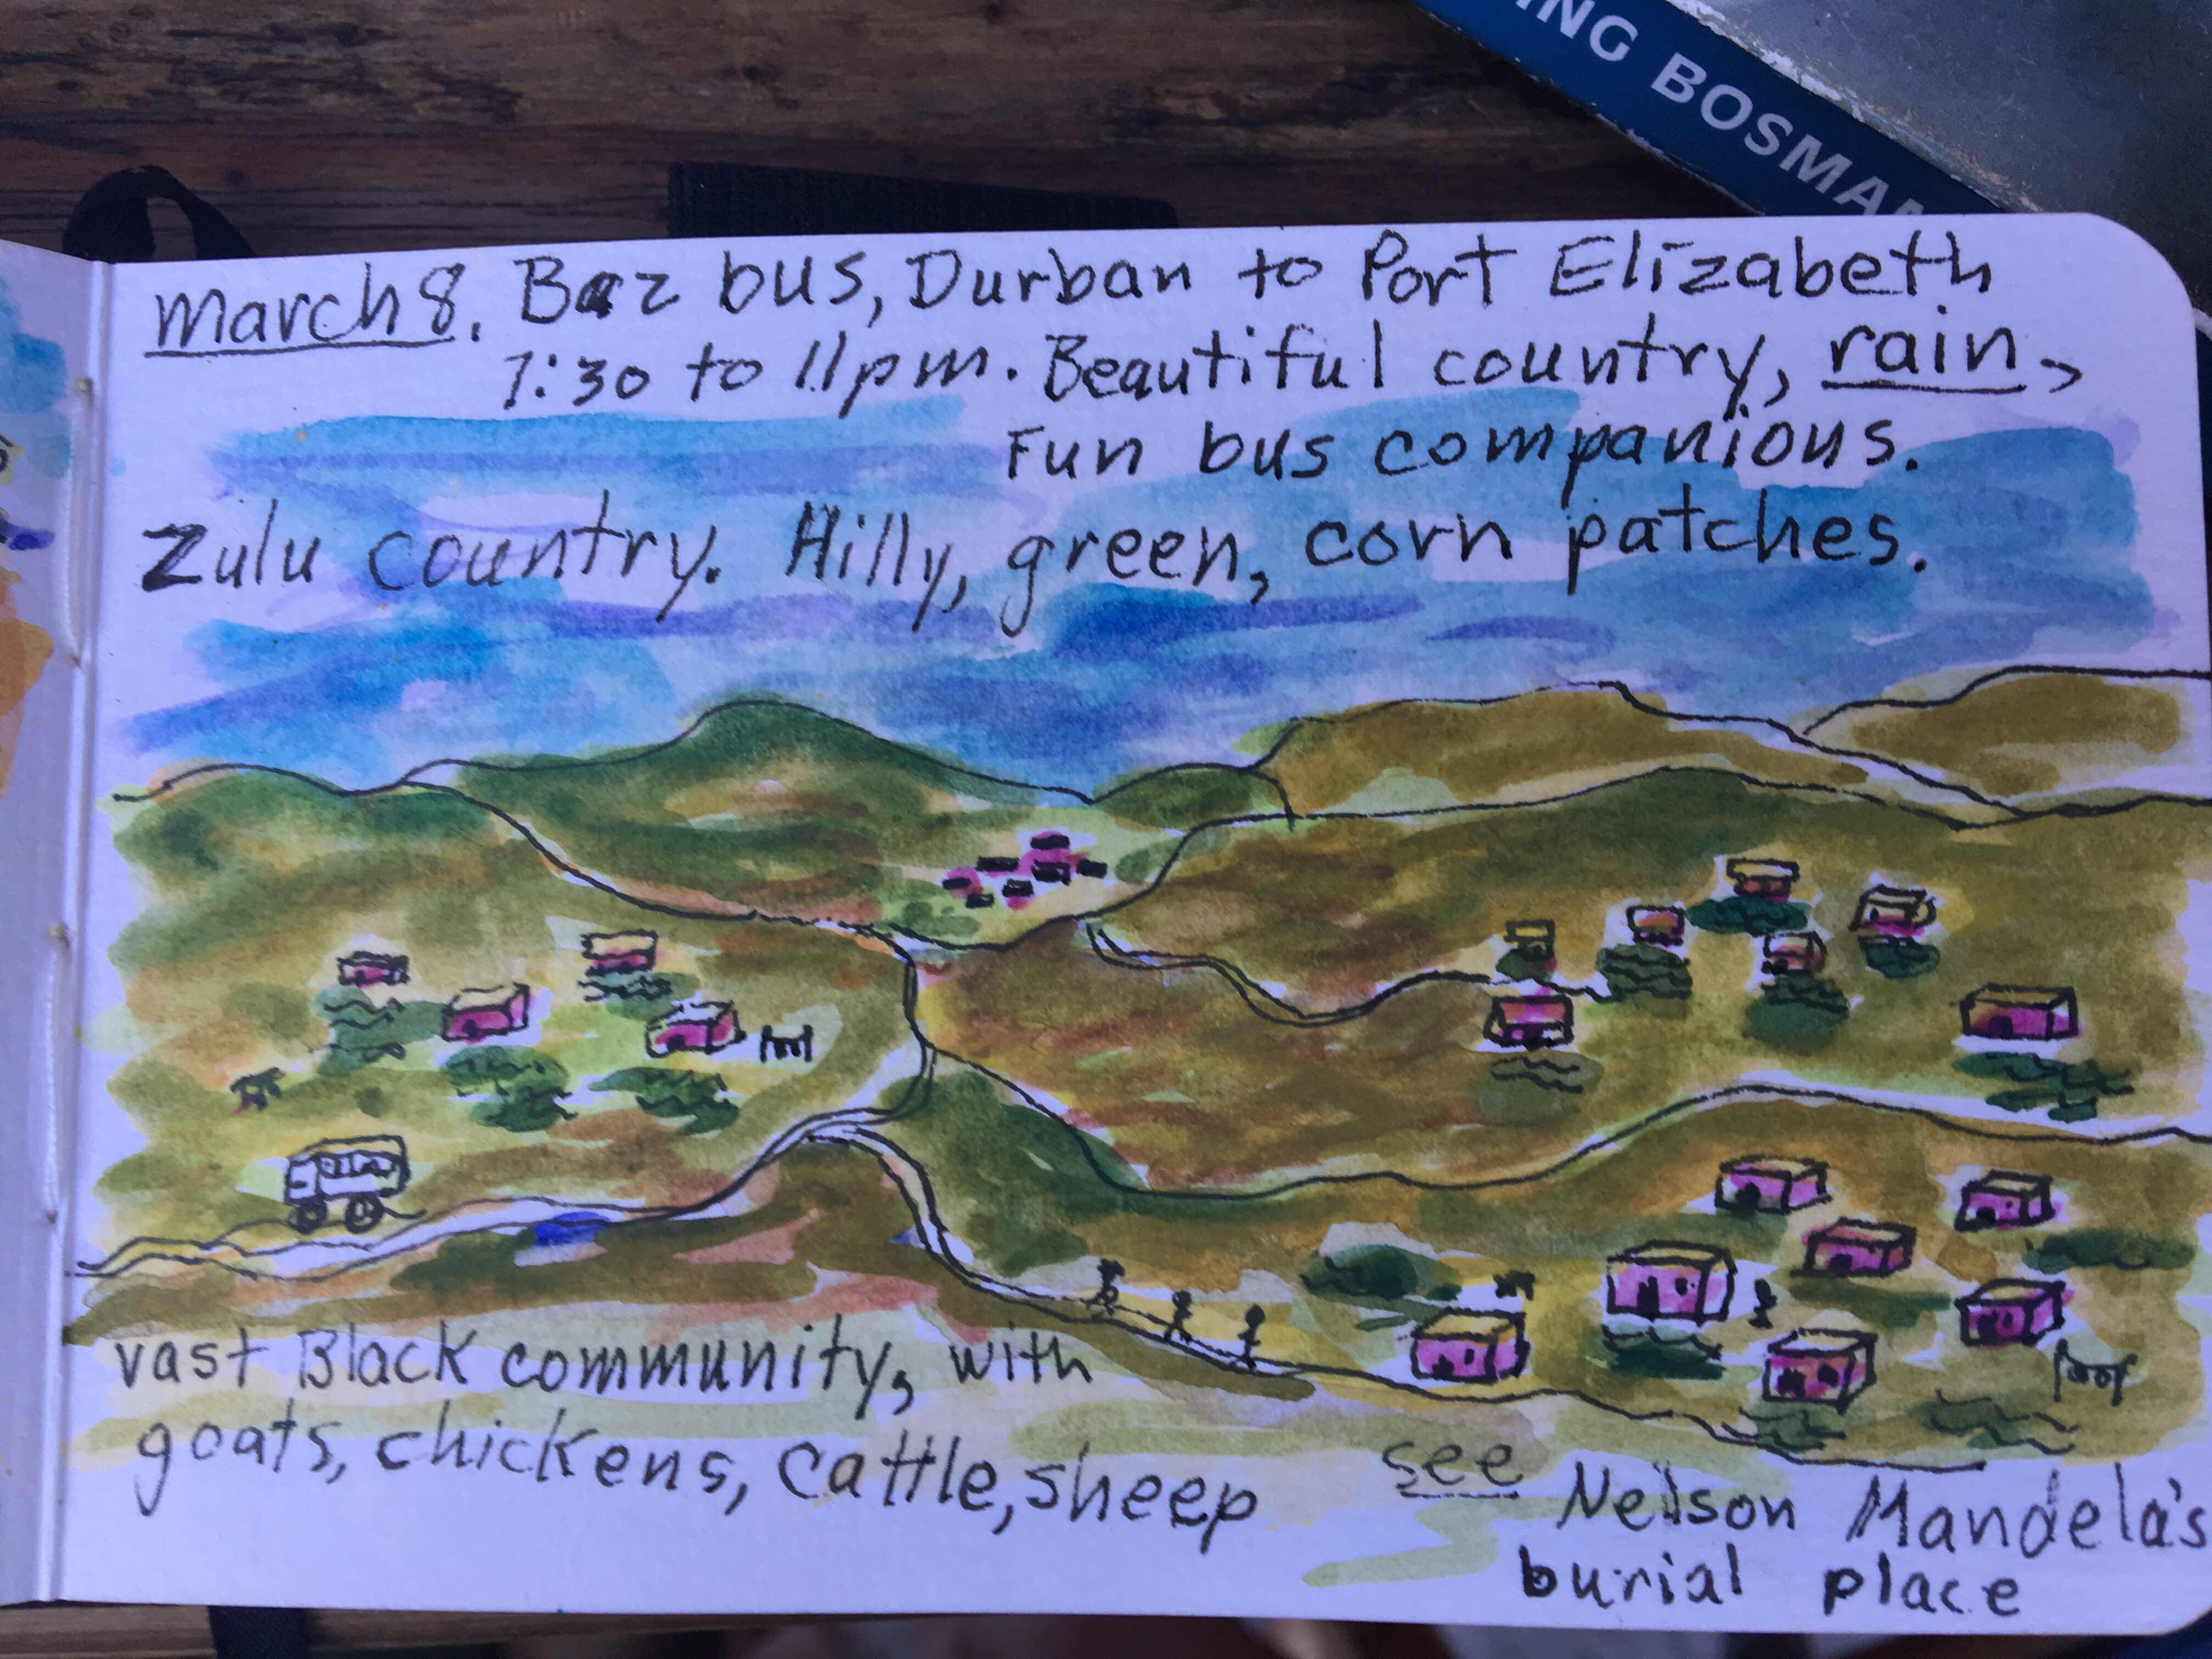 ING BOSMAN
March 8. Baz bus, Durban to Port Elizabeth
7:30 to 11pm. Beautiful country, rain,
Fun bus companions.
Zulu country. Hilly, green, corn patches.
vast Black community, with
goats, chickens, cattle, sheep
see Nelson Mandela's
burial place